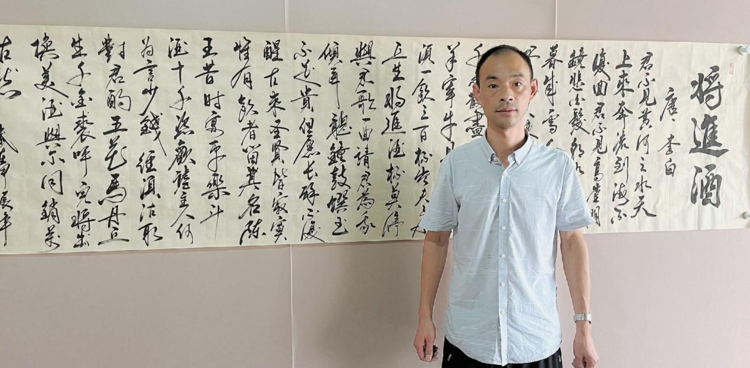 將進酒
唐 李白
君不見黃河之水天
上來奔流到海不
復回君不見高堂明
鏡悲白髮朝如
暮成雪人
千金散盡
羊宰牛
須一飲三百杯岑夫子
丘生將進酒杯莫停
與君歌一曲請君為我
傾耳聽鐘鼓饌玉
不足貴但願長醉不復
醒古來聖賢皆寂寞
惟有飲者留其名陳
王昔時宴平樂斗
酒十千恣歡謔主人何
為言少錢徑須沽取
對君酌五花馬丹丘
生千金裘呼兒將出
換美酒與爾同銷萬
古愁